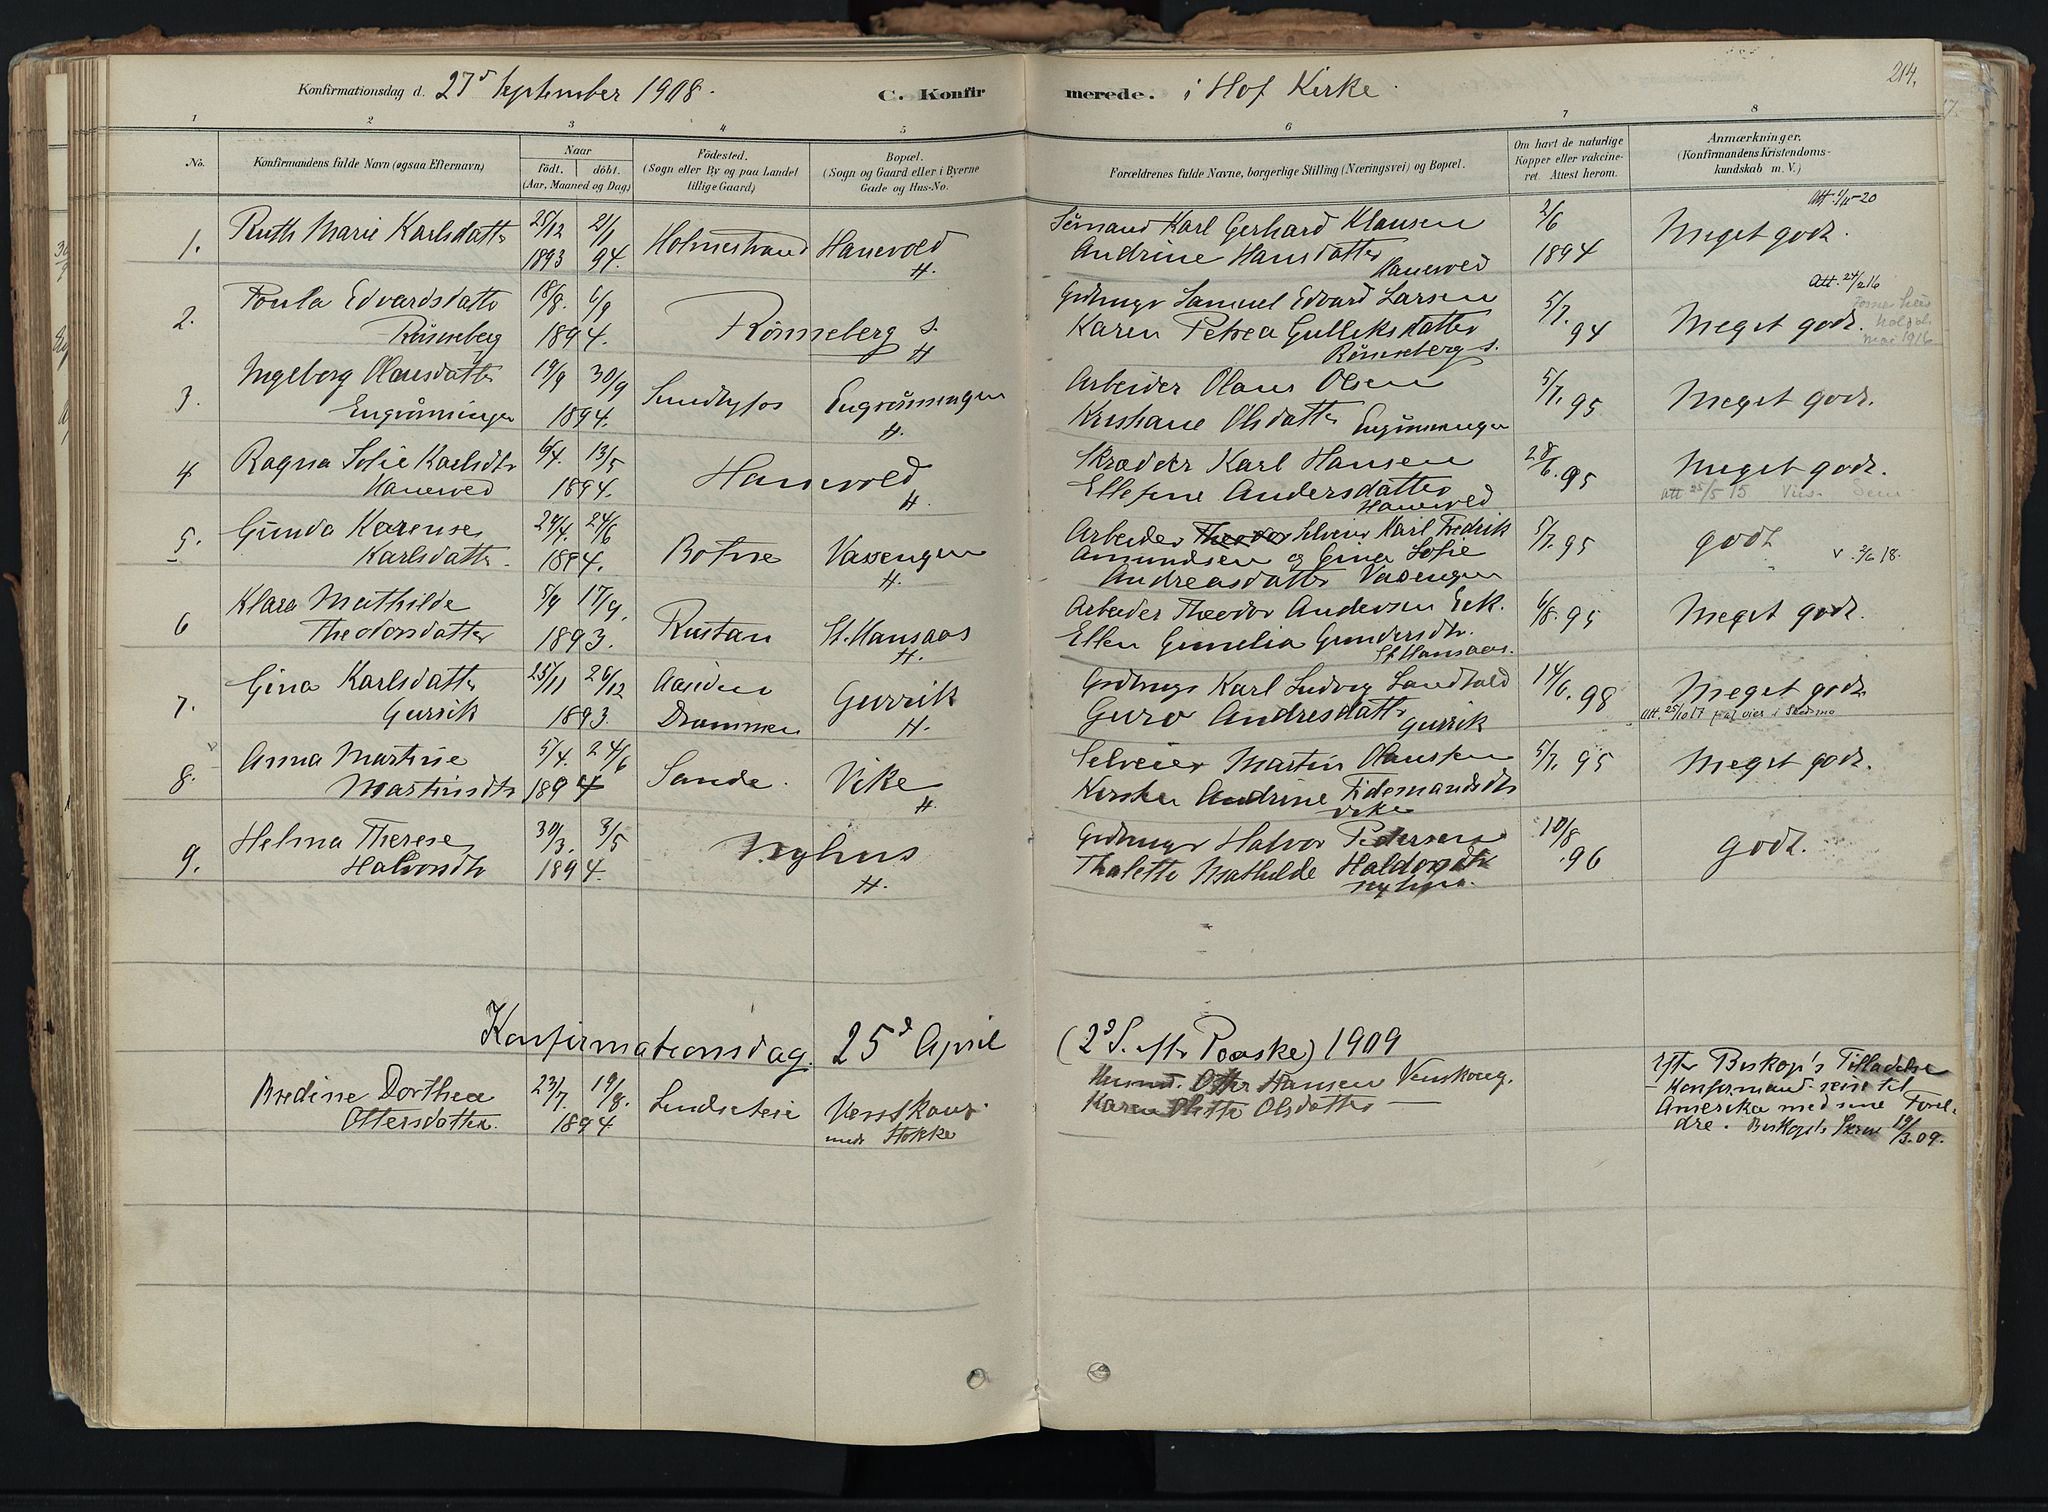 214.
Konfirmationsdag d. 27d September 1908. C. Konfirmerede. i Hof Kirke.
1 2 3 4 5 6 7 8
No. Konfirmandens fulde Navn (ogsaa Efternavn) Naar födt. döbt. (Aar, Maaned og Dag) Födested. (Sogn eller By og paa Landet tillige Gaard) Bopæl. (Sogn og Gaard eller i Byerne Gade og Hus-No. Forældrenes fulde Navne, borgerlige Stilling (Næringsvei) og Bopæl. Om havt de naturlige Kopper eller vakcineret. Attest herom. Anmærkninger. (Konfirmandens Kristendomskundskab m. V.)
1. Ruth Marie Karlsdatter 25/12 21/1 Holmestrand Hanevold Sømand Karl Gerhard Klausen 2/6 Meget godt.
1893 94. H. Andrine Hansdatter Hanevold 1894
2. Paula Edvardsdatter 18/8. 6/9 Rønneberg s. Gdbruger Samuel Edvard Larsen 5/7. Att. 24/2 16
Rønneberg 1894. H Karen Petrea Gulleksdatter 94 Meget godt.
Rønneberg s. mai 1916
3. Ingeborg Olausdatter 19/9 30/9 Sundbyfos Engrønningen Arbeider Olaus Olsen 5/7. 95 Meget godt.
Engrønningen 1894. H. Kristiane Olsdatter Engrønningen
4 Ragna Sofie Karlsdtr 6/4. 13/5 Hanevold Skrædder Karl Hansen 28/6. 95 Meget godt.
Hanevold 1894. H Ellefine Andersdatter Att 25/5 15.
Hanevold
5. Gunda Karense 29/4. 24/6 Botne Vassengen Arbeider Theodor Selveier Karl Fredrik 5/7. 95 godt
Karlsdatter. 1894. H. Amundsen og Gina Sofie v. 2/6 18.
Andreasdatter Vasengen
6 Klara Mathilde 5/9 17/9. Rustan St. Hansaas Arbeider Theodor Andersen Eek. 6/8. 95 Meget godt.
Theodorsdatter 1893. H. Ellen Gunelia Gundersdtr.
St Hansaas.
7. Gina Karlsdatter 25/11 26/12 Aasiden Gurrik Gdbruger Karl Ludvig Sandvold 14/6. 98 Meget godt
Gurrik 1893. Drammen H. Guro Andresdatter Gurrik Att. 25/10 17
8. Anna Martine 5/4. 24/6 Sande. Vike Selveier Martin Olausen 5/7. 95 Meget godt.
Martinsdtr 1894 H. Kirsten Andrine Tidemandsdtr
Vike
9. Helma Therese 30/3. 3/5 Nyhus Gdbruger Halvor Pedersen 10/8 godt.
Halvorsdtr 1894. H. Thalette Mathilde Haldorsdtr .96
Nyhus.
Konfirmationsdag. 25d April (2d S. eftr Paaske) 1909
Bredine Dorthea 23/7. 19/8. Venskoug. Otter Hansen Venskoug. Efter Biskop's Tilladelse
Ottersdatter. 1894 nedr Stokke Karen Olette Olsdatter — – Konfirmand reise til
Amerika med sine Foreldre. Biskops Skriv 19/3.09.